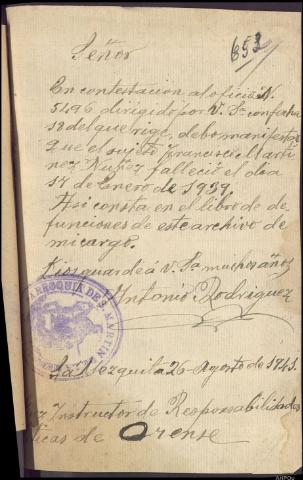 653
Señor
En contestación al oficio N.
5496 dirigido por V. Sª con fecha
18 del que rige, debo manifestar
que el sujeto Francisco Martí
nez Nuñez falleció el día
14 de Enero de 1937.
Asi consta en el libro de de
funciones de este archivo de
mi cargo.
Dios guarde á V. Sª muchos años
Antonio Rodriguez
PARROQUIA DE S. MARTIN
26 Agosto de 1941.
Instructor de Responsabilidades
ticas de Orense